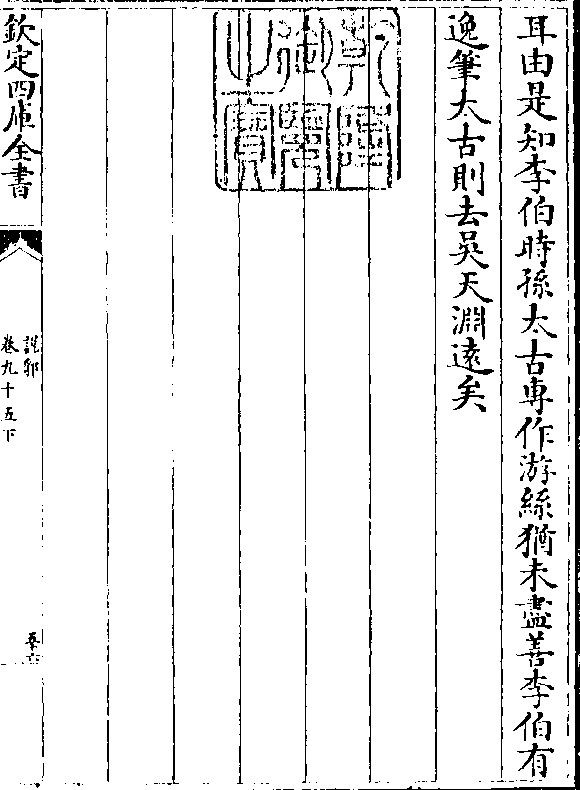 耳由是知李伯時孫太古専作游絲猶未盡善李伯有
逸筆太古則去吳天淵遠矣
乾隆御覽之寶
欽定四庫全書
說郛
卷九十五下